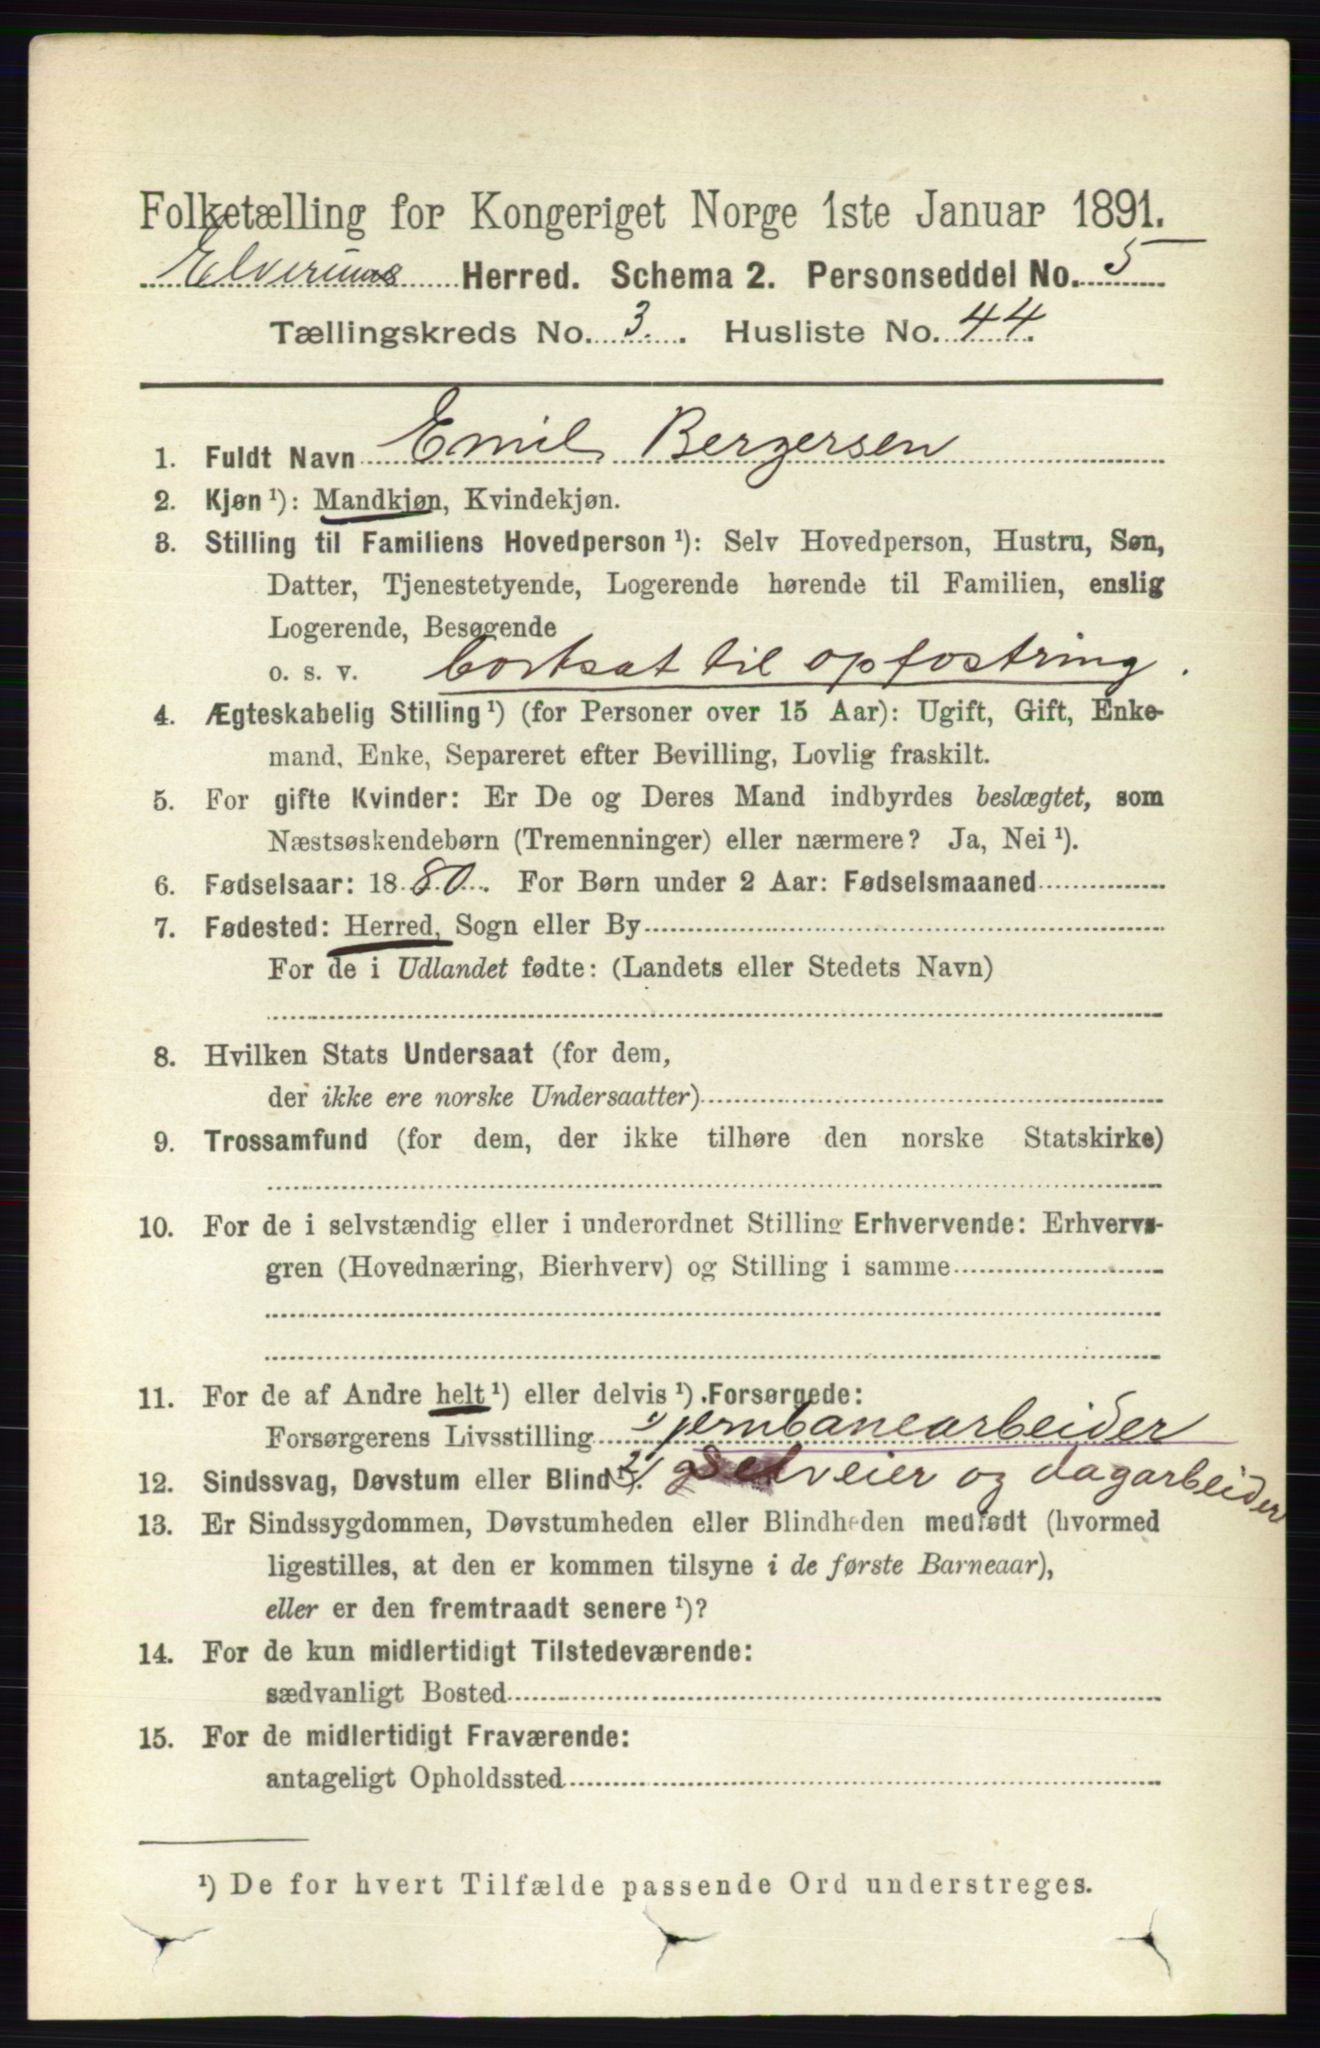 Folketælling for Kongeriget Norge 1ste Januar 1891.
Elverums Herred. Schema 2. Personseddel No. 5
Tællingskreds No. 3. Husliste No. 44.
1. Fuldt Navn Emil Bergersen
2. Kjøn ¹): Mandkjøn, Kvindekjøn.
3. Stilling til Familiens Hovedperson ¹): Selv Hovedperson, Hustru, Søn,
Datter, Tjenestetyende, Logerende hørende til Familien, enslig
Logerende, Besøgende
o. s. v. bortsat til opfostring.
4. Ægteskabelig Stilling ¹) (for Personer over 15 Aar): Ugift, Gift, Enke-
mand, Enke, Separeret efter Bevilling, Lovlig fraskilt.
5. For gifte Kvinder: Er De og Deres Mand indbyrdes beslægtet, som
Næstsøskendebørn (Tremenninger) eller nærmere? Ja, Nei ¹).
6. Fødselsaar: 1880. For Børn under 2 Aar: Fødselsmaaned
7. Fødested: Herred, Sogn eller By
For de i Udlandet fødte: (Landets eller Stedets Navn)
8. Hvilken Stats Undersaat (for dem,
der ikke ere norske Undersaatter)
9. Trossamfund (for dem, der ikke tilhøre den norske Statskirke)
10. For de i selvstændig eller i underordnet Stilling Erhvervende: Erhvervs-
gren (Hovednæring, Bierhverv) og Stilling i samme
11. For de af Andre helt ¹) eller delvis ¹) Forsørgede:
Forsørgerens Livsstilling 1) jernbanearbeider
12. Sindssvag, Døvstum eller Blind ¹). 2) Selveier og dagarbeider
13. Er Sindssygdommen, Døvstumheden eller Blindheden medfødt (hvormed
ligestilles, at den er kommen tilsyne i de første Barneaar),
eller er den fremtraadt senere ¹)?
14. For de kun midlertidigt Tilstedeværende:
sædvanligt Bosted
15. For de midlertidigt Fraværende:
antageligt Opholdssted
¹) De for hvert Tilfælde passende Ord understreges.